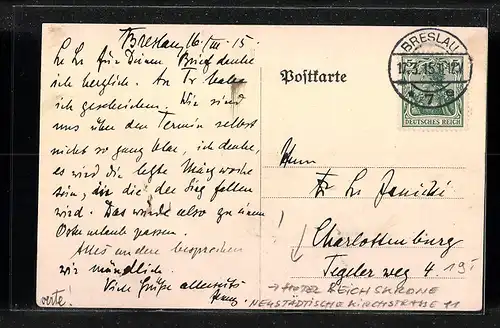 Breslau, 16/III. 15.
Lr Lr Für Deinen Brief danke
ich herzlich. An Tr habe
ich geschrieben. Wir sind
uns über den Termin selbst
nicht so ganz klar, ich denke,
es wird die letzte Märzwoche
sein, in die der Tag fallen
wird. Das würde also zu einem
Osterurlaub passen.
Alles andere besprechen
wir mündlich.
Viele Grüße allerseits
verte!
Postkarte
BRESLAU
16.3.15
DEUTSCHES REICH
Herrn
Charlottenburg
Tegeler weg 4.
→ HOTEL REICHSKRONE
NEUSTÄDTISCHE KIRCHSTRASSE 11